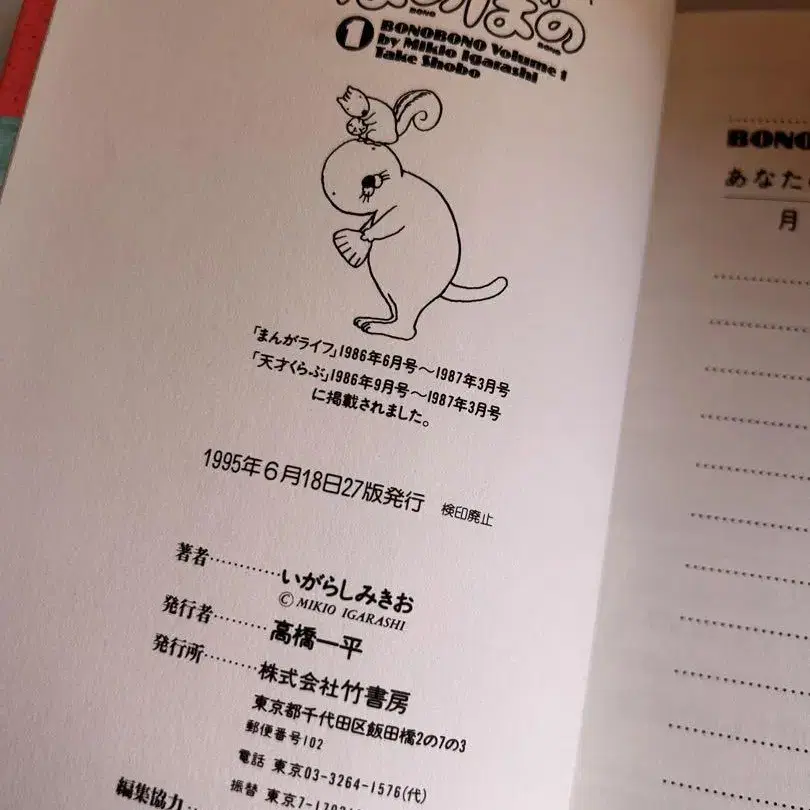 ぼのぼの
BONO BONO
1 BONOBONO Volume 1
by Mikio Igarashi
Take Shobo
「まんがライフ」1986年6月号〜1987年3月号
「天才くらぶ」1986年9月号〜1987年3月号
に掲載されました。
1995年6月18日27版発行 検印廃止
著者…………いがらしみきお
© MIKIO IGARASHI
発行者………高橋一平
発行所………株式会社竹書房
東京都千代田区飯田橋2の7の3
郵便番号102
電話 東京03-3264-1576(代)
振替 東京
編集協力
BONO
あなた
月